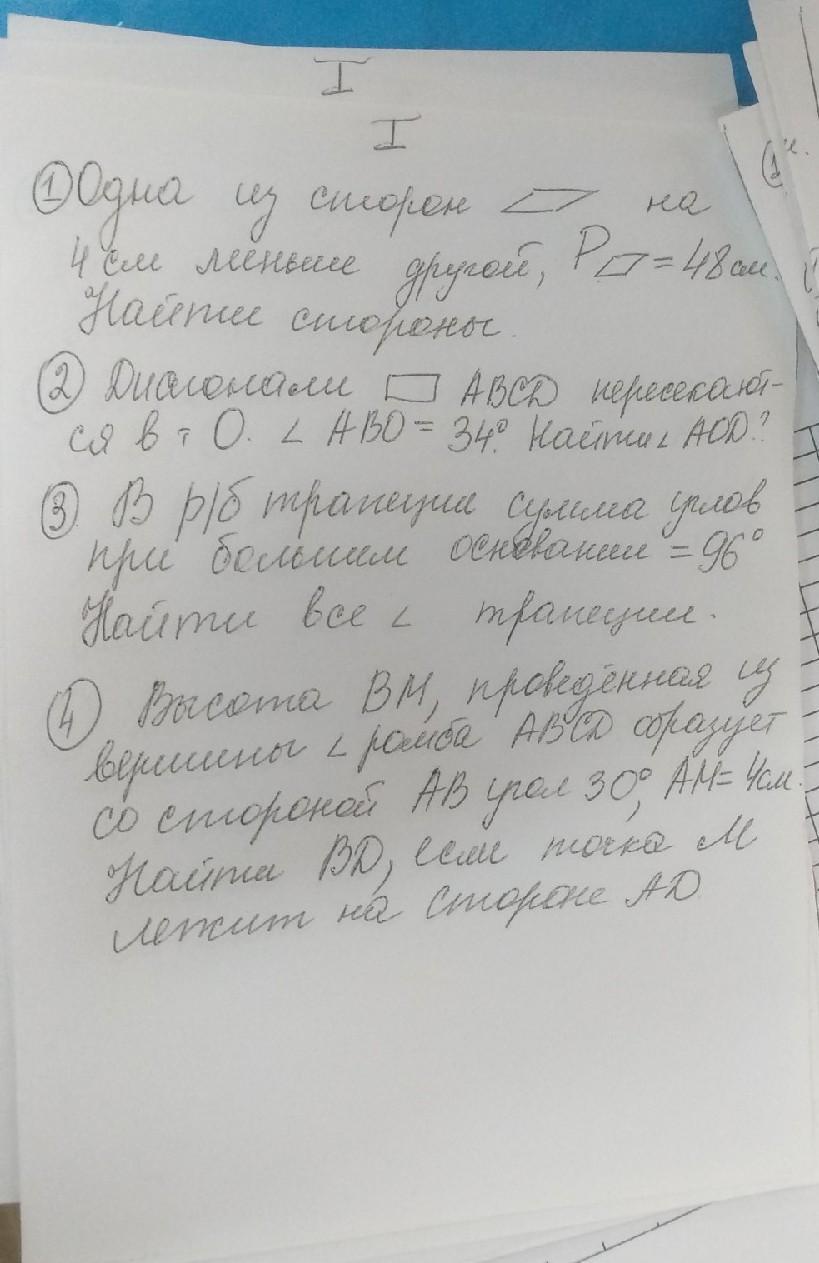 I
I
① Одна из сторон ▱ на
4 см меньше другой, P▱ = 48 см.
Найти стороны.
② Диагонали ▭ ABCD пересекают-
ся в т O. ∠ ABO = 34°. Найти ∠ AOD?
③ В р/б трапеции сумма углов
при большем основании = 96°
Найти все ∠ трапеции.
④ Высота BM, проведённая из
вершины ∠ ромба ABCD образует
со стороной AB угол 30°, AM = 4см.
Найти BD, если точка M
лежит на стороне AD